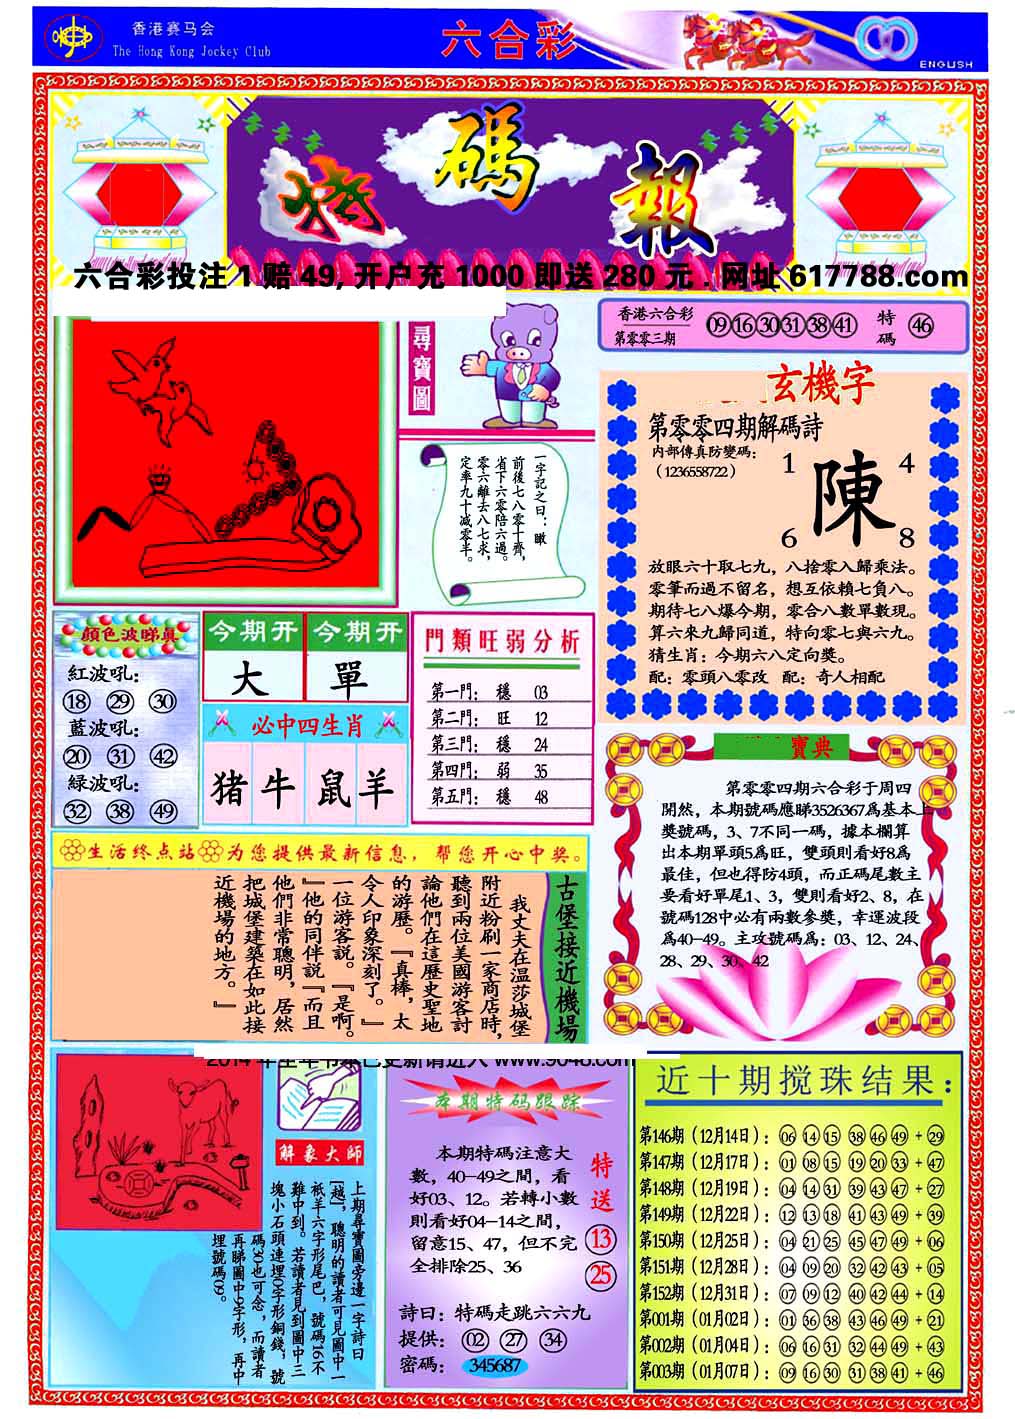 香港赛马会
The Hong Kong Jockey Club
六合彩
ENGLISH
特碼報
六合彩投注 1 赔 49, 开户充 1000 即送 280 元 . 网址 617788.com
尋寶圖
香港六合彩
第零零三期
09 16 30 31 38 41
特碼
46
玄機字
第零零四期解碼詩
内部傳真防變碼:
（1236558722）
1 4
陳
6 8
放眼六十取七九，八捨零入歸乘法。
零筆而過不留名，想互依賴七負八。
期待七八爆今期，零合八數單數現。
算六來九歸同道，特向零七與六九。
猜生肖：今期六八定向獎。
配：零頭八零改 配：奇人相配
一字記之曰：瞅
前後七八零十齊，
省下六零陪六過。
零六離去八七求，
定率九十減零半。
顔色波睇真
紅波吼:
18 29 30
藍波吼:
20 31 42
緑波吼:
32 38 49
今期开 今期开
大 單
必中四生肖
猪 牛 鼠 羊
門類旺弱分析
第一門: 穩 03
第二門: 旺 12
第三門: 穩 24
第四門: 弱 35
第五門: 穩 48
寶典
第零零四期六合彩于周四
開然，本期號碼應睇3526367爲基本上
獎號碼，3、7不同一碼，據本欄算
出本期單頭5爲旺，雙頭則看好8爲
最佳，但也得防4頭，而正碼尾數主
要看好單尾1、3，雙則看好2、8，在
號碼128中必有兩數參獎，幸運波段
爲40-49。主攻號碼爲：03、12、24、
28、29、30、42
生活终点站 为您提供最新信息，帮您开心中奖。
古堡接近機場
我丈夫在温莎城堡
附近粉刷一家商店時，
聽到兩位美國游客討
論他們在這歷史聖地
的游歷。『真棒，太
令人印象深刻了。』
一位游客説。『是啊。
』他的同伴説『而且
他們非常聰明，居然
把城堡建築在如此接
近機場的地方。』
www.9048.com
解象大師
上期尋寶圖旁邊一字詩曰
[越]，聰明的讀者可見圖中一
衹羊六字形尾巴，號碼16不
難中到。若讀者見到圖中三
塊小石頭連埋0字形銅錢，號
碼30也可念，而讀者
再睇圖中9字形，再中
埋號碼09。
本期特码跟踪
本期特码注意大
數，40-49之間，看
好03、12。若轉小數
則看好04-14之間，
留意15、47，但不完
全排除25、36
特送
13
25
詩曰：特碼走跳六六九
提供： 02 27 34
密碼： 345687
近十期搅珠结果：
第146期（12月14日）: 06 14 15 38 46 49 + 29
第147期（12月17日）: 01 08 15 19 20 33 + 47
第148期（12月19日）: 04 14 31 39 43 47 + 27
第149期（12月22日）: 12 13 18 41 43 49 + 39
第150期（12月25日）: 04 21 25 45 47 49 + 06
第151期（12月28日）: 04 09 20 32 42 43 + 05
第152期（12月31日）: 07 09 12 40 42 44 + 14
第001期（01月02日）: 01 36 38 43 46 49 + 21
第002期（01月04日）: 06 16 31 32 44 49 + 43
第003期（01月07日）: 09 16 30 31 38 41 + 46